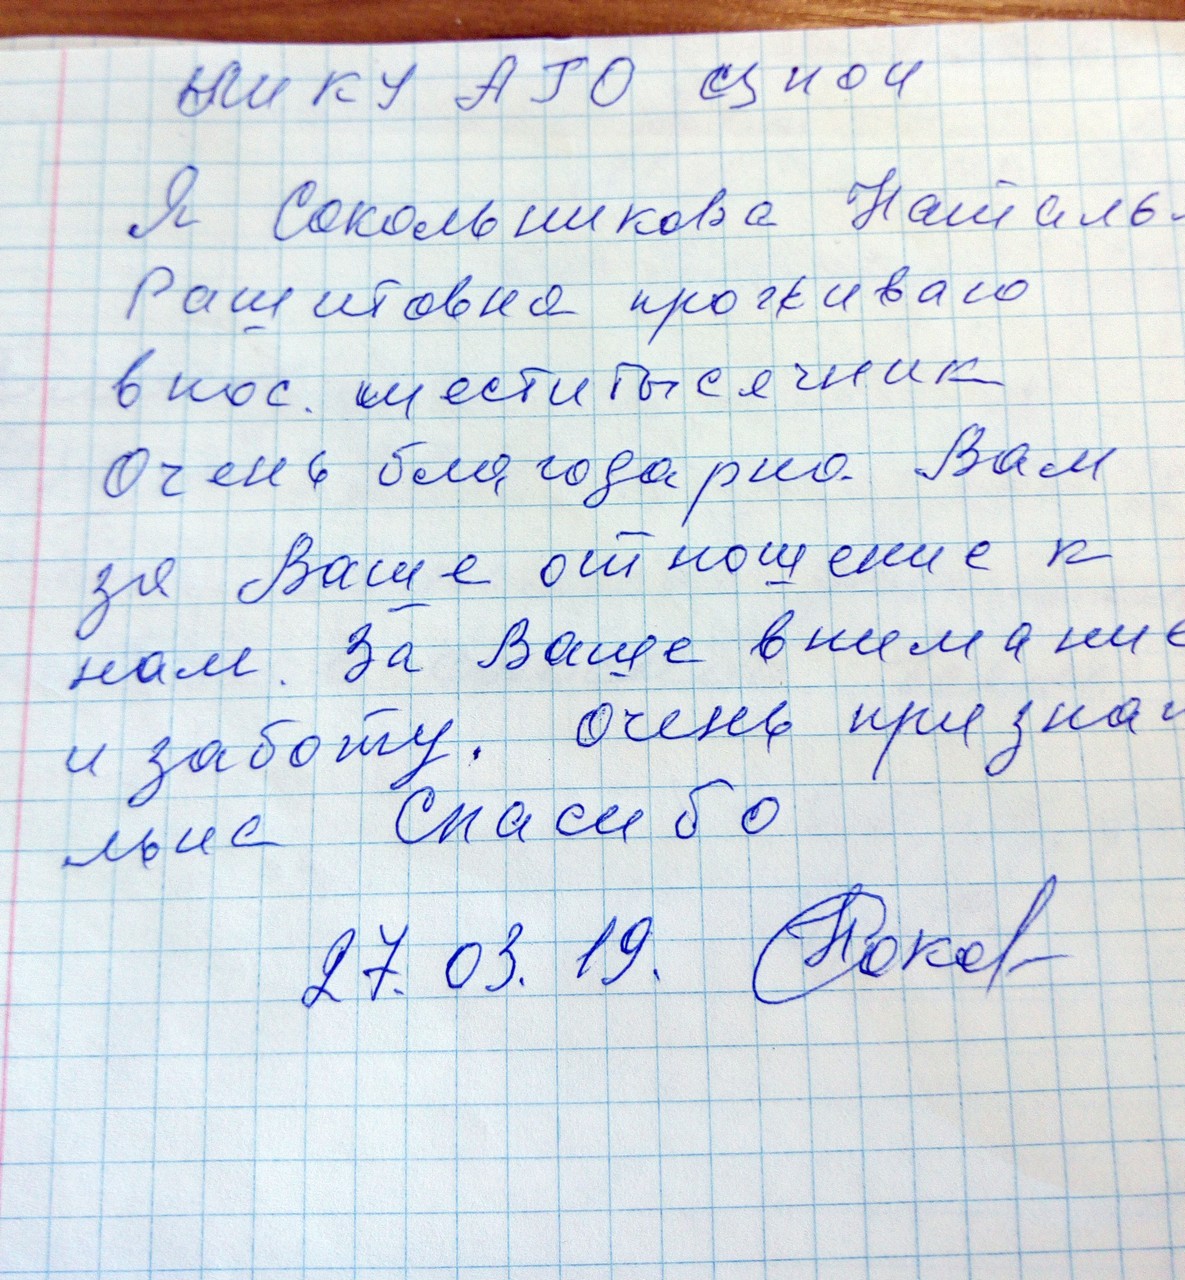 Нику АГО Цной
Я Сокольникова Наталь
Рашитовна проживаю
в пос. шеститысячник
Очень благодарна Вам
за Ваше отношение к
нам. За Ваше внимание
и заботу. Очень призна
льна Спасибо
27.03.19.